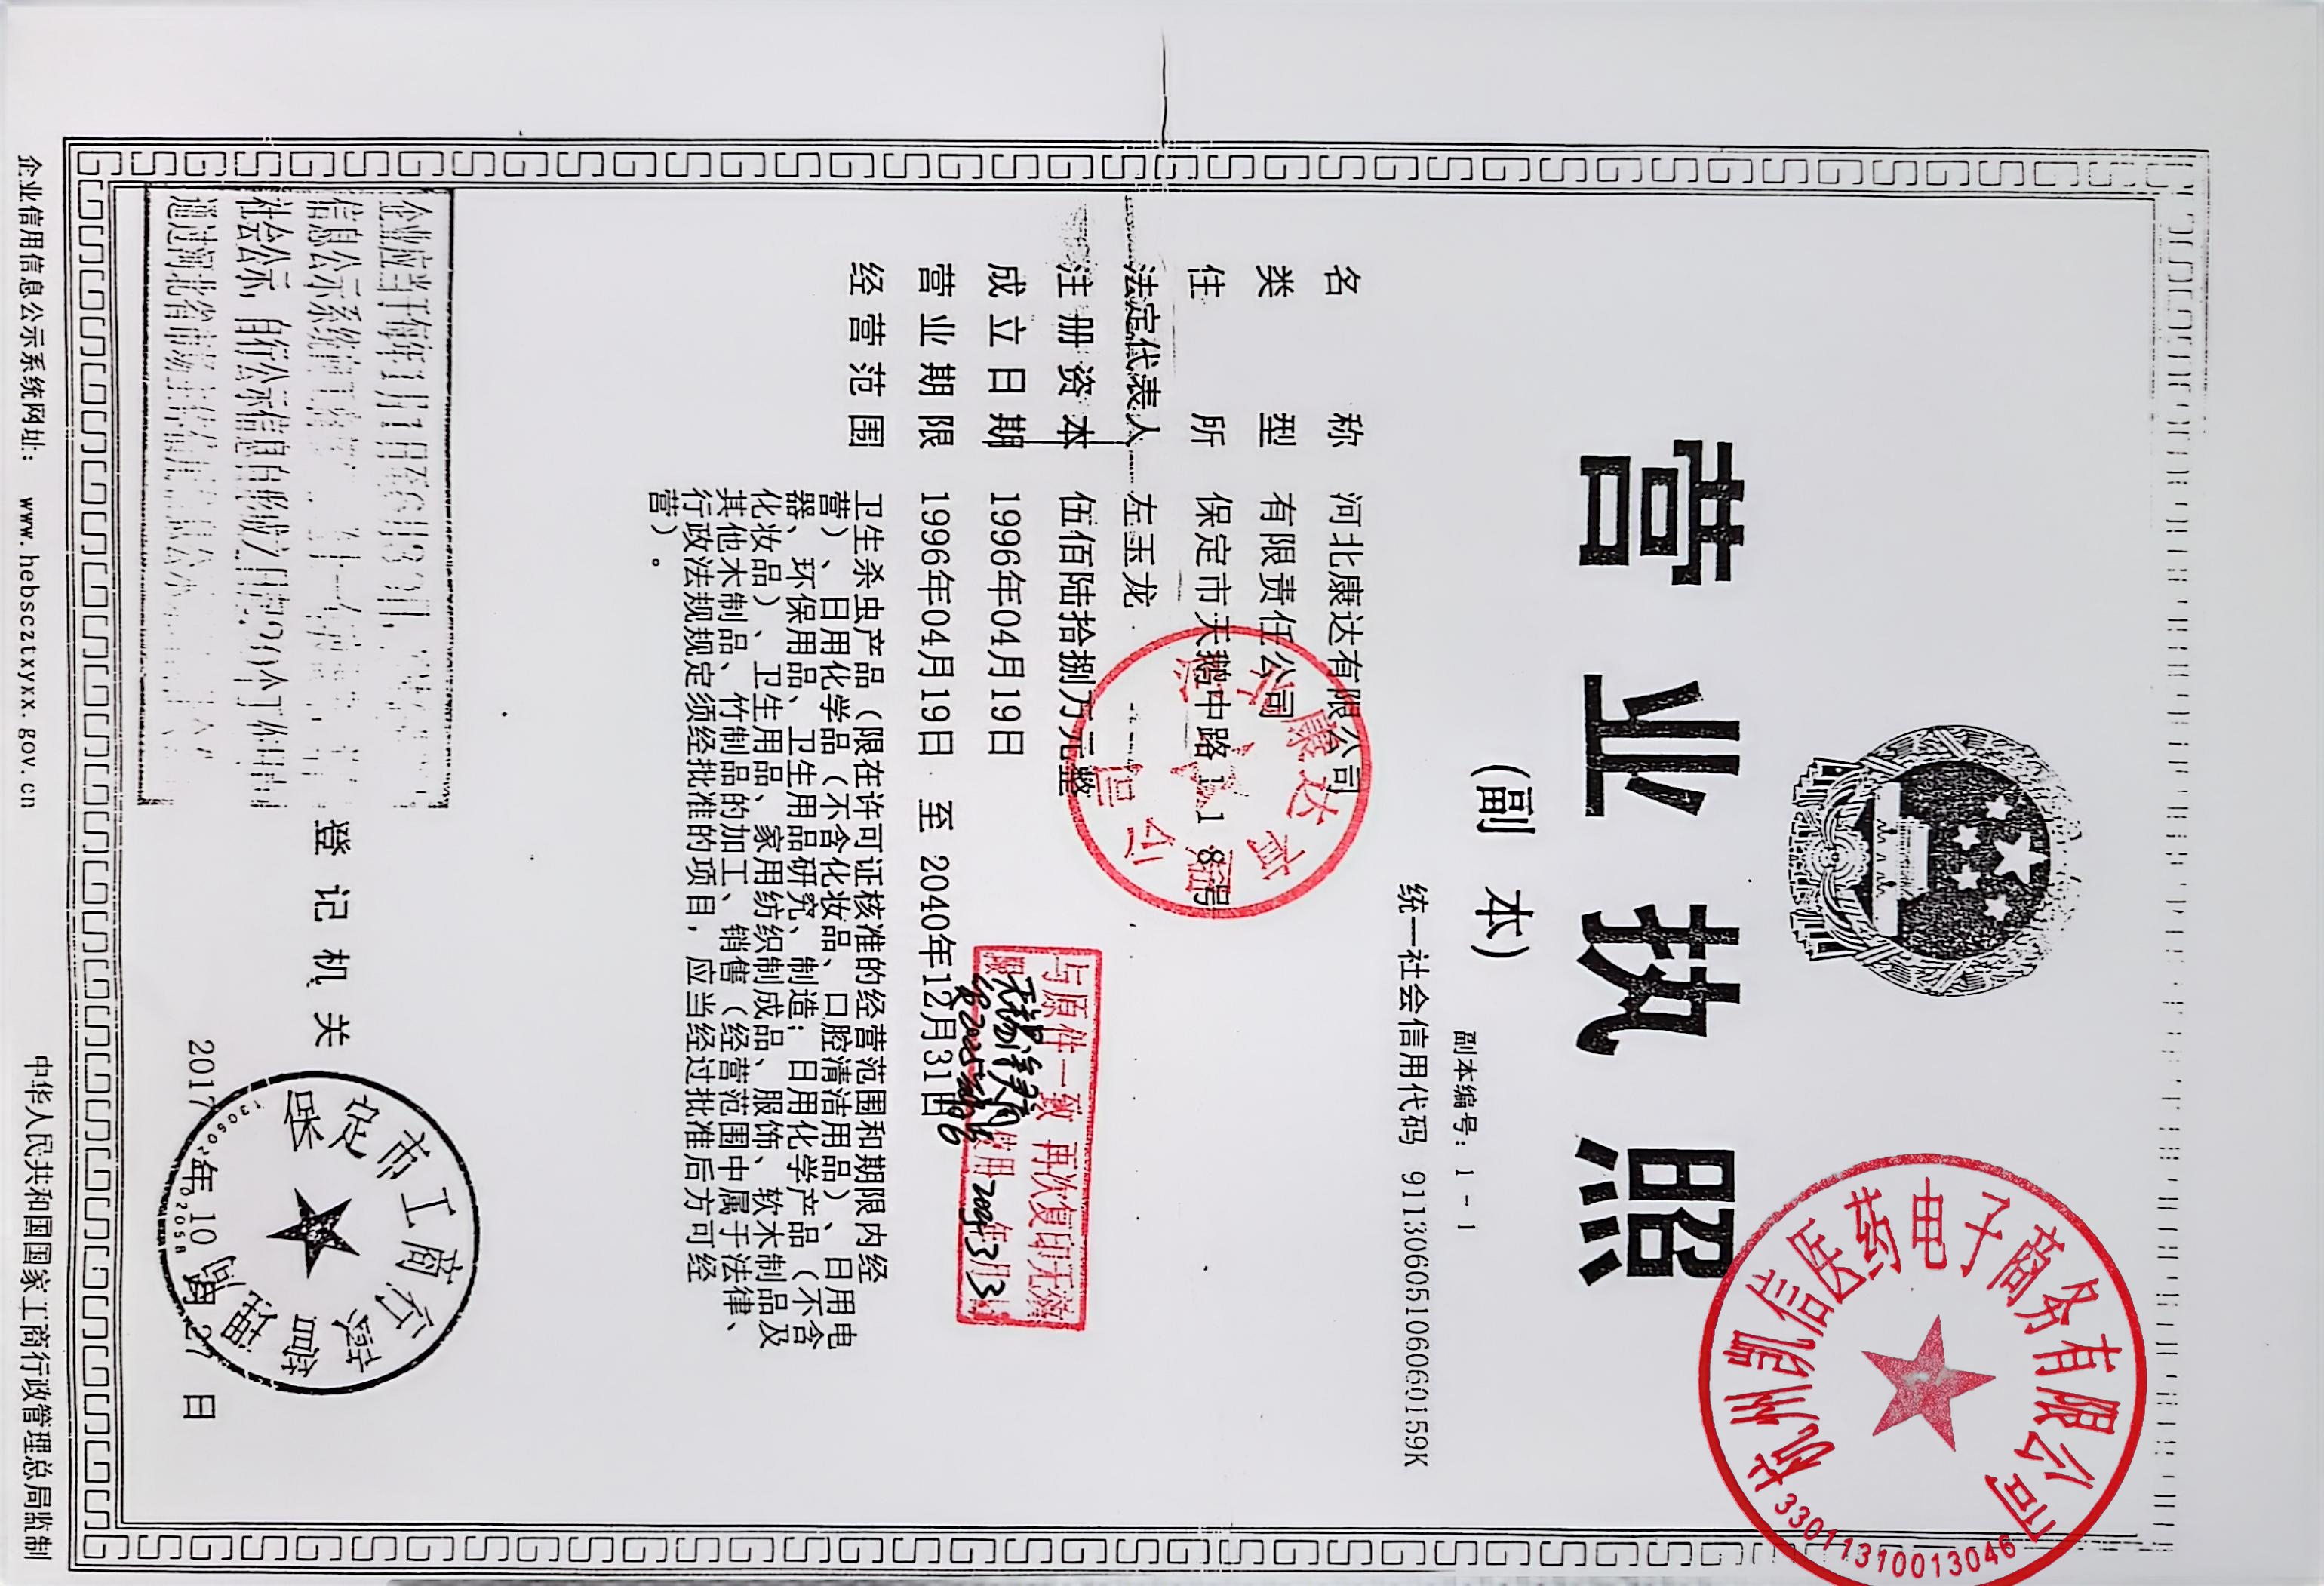 营业执照
(副 本)
副本编号: 1-1
统一社会信用代码 91130605106060159K
名称 河北康达有限公司
类型 有限责任公司
住所 保定市天鹅中路118号
法定代表人 左玉龙
注册资本 伍佰陆拾捌万元整
成立日期 1996年04月19日
营业期限 1996年04月19日 至 2040年12月31日
经营范围 卫生杀虫产品（限在许可证核准的经营范围和期限内经
营）、日用化学品（不含化妆品、口腔清洁用品）、日用电
器、环保用品、卫生用品研究、制造；日用化学产品（不含
化妆品）、卫生用品、家用纺织制成品、服饰、软木制品及
其他木制品、竹制品的加工、销售（经营范围中属于法律、
行政法规规定须经批准的项目，应当经过批准后方可经
营）。
康达有限公司
与原件一致 再次复印无效
杭州临信医药电子商务有限公司
33011310013046
企业应当于每年1月1日至6月30日,
信息公示系统
社会公示, 自行公示信息自形成之日起20个工作日
通过河北省市场主体信用信息公示
登记机关
保定市工商行政管理局
2017年10月27日
企业信用信息公示系统网址: www.hebscztxyxx.gov.cn
中华人民共和国国家工商行政管理总局监制